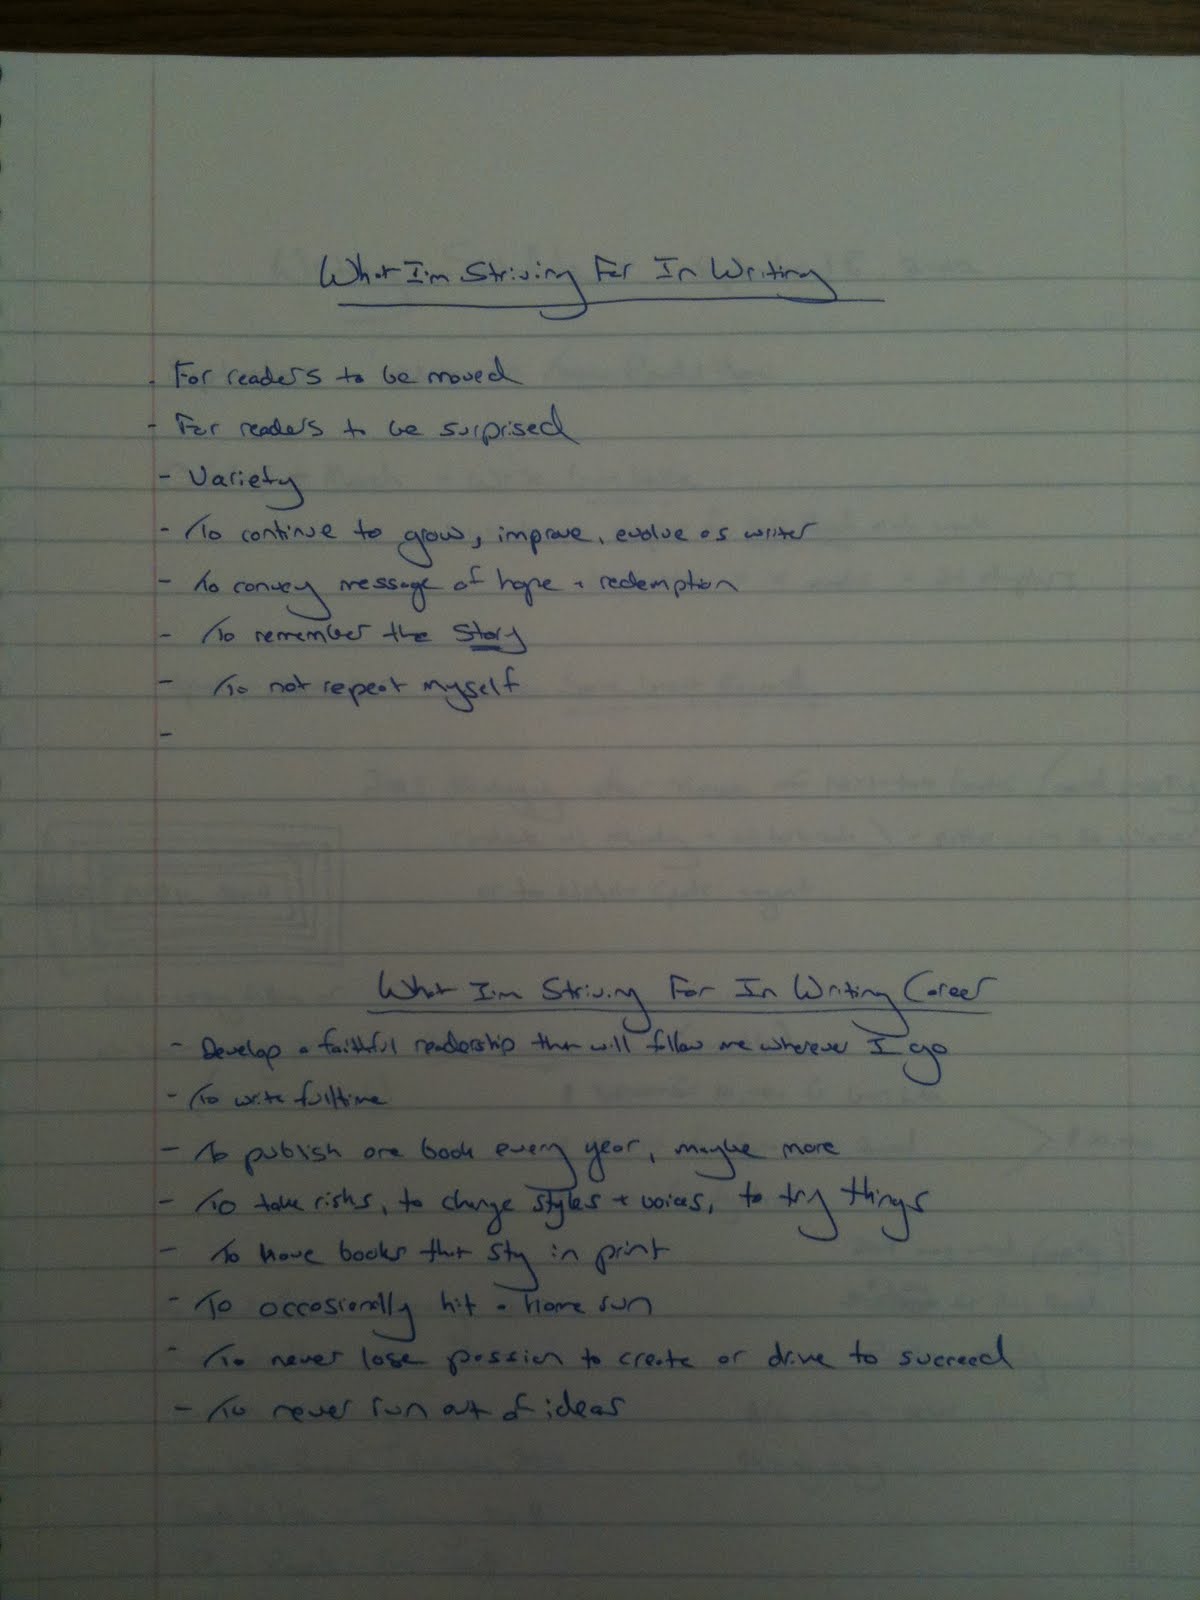 What I'm Striving For In Writing
- For readers to be moved
- For readers to be surprised
- Variety
- To continue to grow, improve, evolve as writer
- To convey message of hope + redemption
- To remember the Story
- To not repeat myself
-
What I'm Striving For In Writing Career
- Develop a faithful readership that will follow me wherever I go
- To write fulltime
- To publish one book every year, maybe more
- To take risks, to change styles + voices, to try things
- To have books that sty in print
- To occasionally hit a home run
- To never lose passion to create or drive to succeed
- To never run out of ideas